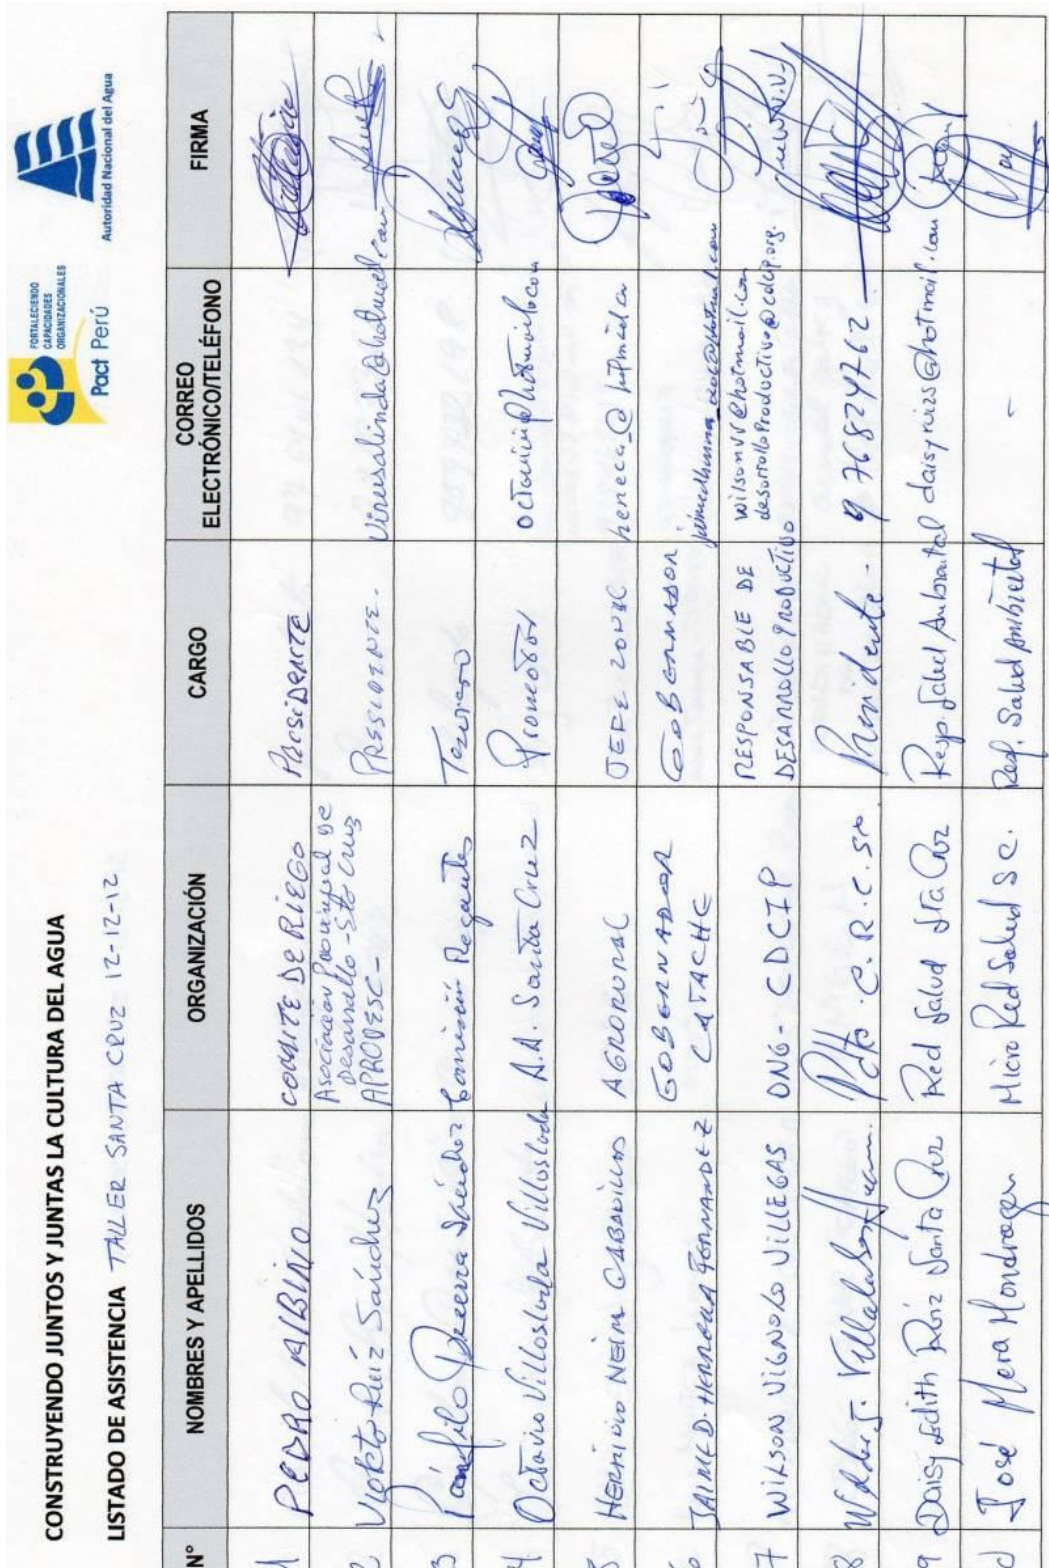 CONSTRUYENDO JUNTOS Y JUNTAS LA CULTURA DEL AGUA
FORTALECIENDO
CAPACIDADES
ORGANIZACIONALES
Pact Perú
Autoridad Nacional del Agua
LISTADO DE ASISTENCIA TALLER SANTA CRUZ 12-12-12
N° NOMBRES Y APELLIDOS ORGANIZACIÓN CARGO CORREO ELECTRÓNICO/TELÉFONO FIRMA
1 PEDRO ALBINO COMITE DE RIEGO PRESIDENTE
2 Victor Ruíz Sánchez Asociación Provincial de
Desarrollo - Sto Cruz
APRODESC - PRESIDENTE.
3 Pánfilo Becerra Sánchez Comisión Regantes Tesorero
4 Octavio Villoslada Villoslada A.A. Santa Cruz Promotor
5 HERMINIO NEIRA CABANILLAS AGRORURAL JEFE ZONAL
6 JAIME D. HERRERA FERNANDEZ GOBERNADOR
CATACHE GOBERNADOR
7 WILSON VIGNOLO VILLEGAS ONG - CDCIP RESPONSABLE DE
DESARROLLO PRODUCTIVO wilsonvv@hotmail.com
desarrolloProductivo@cdcip.org.
8 Pdte. C.R.C.St. Presidente - 976824762 -
9 Daisy Edith Ruíz Santa Cruz Red Salud Sta. Cruz Resp. Salud Ambiental daisyruizs@hotmail.com
José Mera Mondragon Micro Red Salud S.C. Resp. Salud Ambiental -